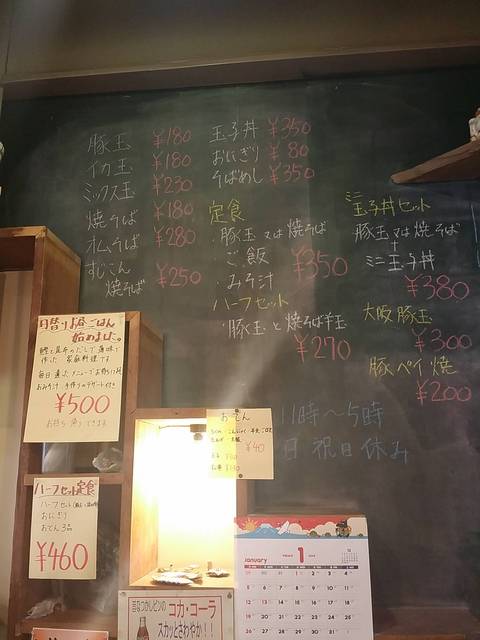 豚玉 ¥180
イカ玉 ¥180
ミックス玉 ¥230
焼そば ¥180
オムそば ¥280
すじこん
焼そば ¥250
玉子丼 ¥350
おにぎり ¥80
そばめし ¥350
定食
・豚玉又は焼そば
・ご飯
・みそ汁
¥350
ハーフセット
・豚玉と焼そば半玉
¥270
ミニ玉子丼セット
豚玉又は焼そば
+
ミニ玉子丼
¥380
大阪豚玉
¥300
豚ペイ焼
¥200
11時〜5時
日祝日休み
日替りお昼ごはん
始めました。
鰹と昆布のだしで薄味で
作った家庭料理です
おみそ汁 手作りのデザート付き
¥500
ハーフセット定食
おにぎり
おでん3品
¥460
おでん
¥40
昔なつかしビンの
コカ・コーラ
スカッとさわやか!!
1
January